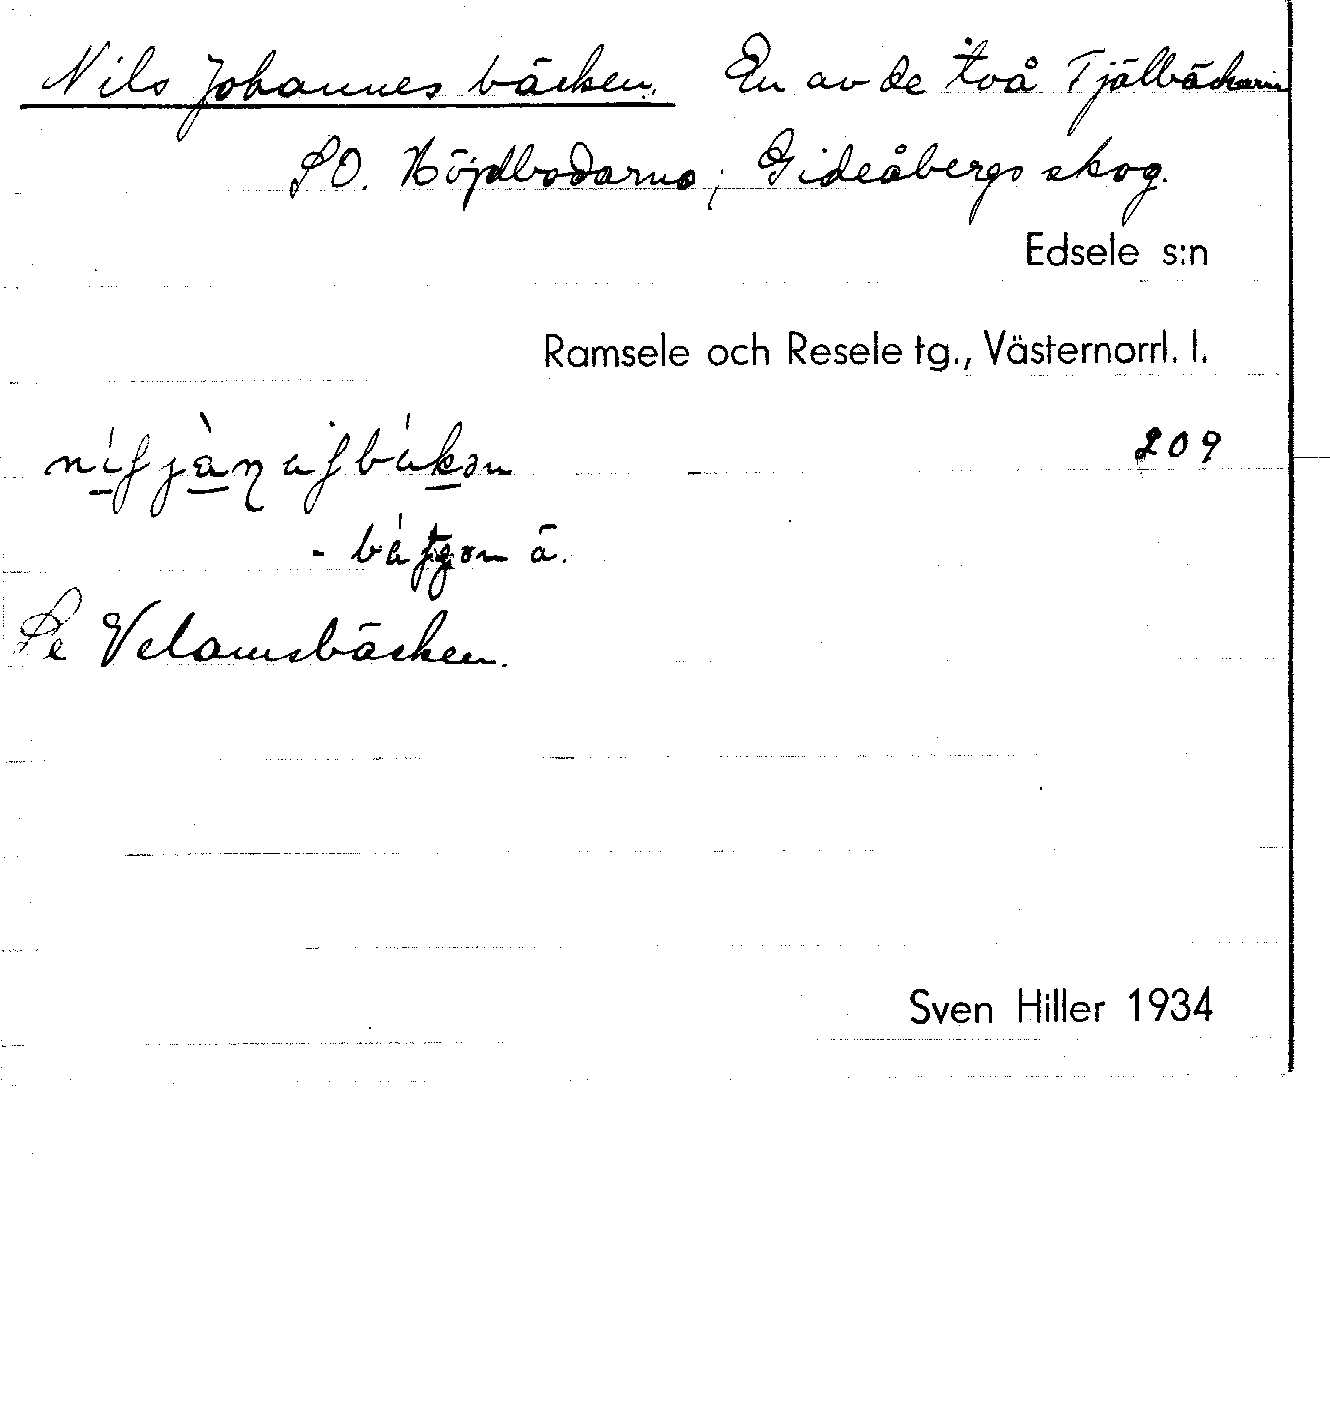 Nils Johannes bäcken. En av de två Tjälbäckarna
SO. Höjdbodarna; Gideåbergs skog.
Edsele s:n
Ramsele och Resele tg., Västernorrl. l.
209
ä.
Se Velamsbäcken.
Sven Hiller 1934